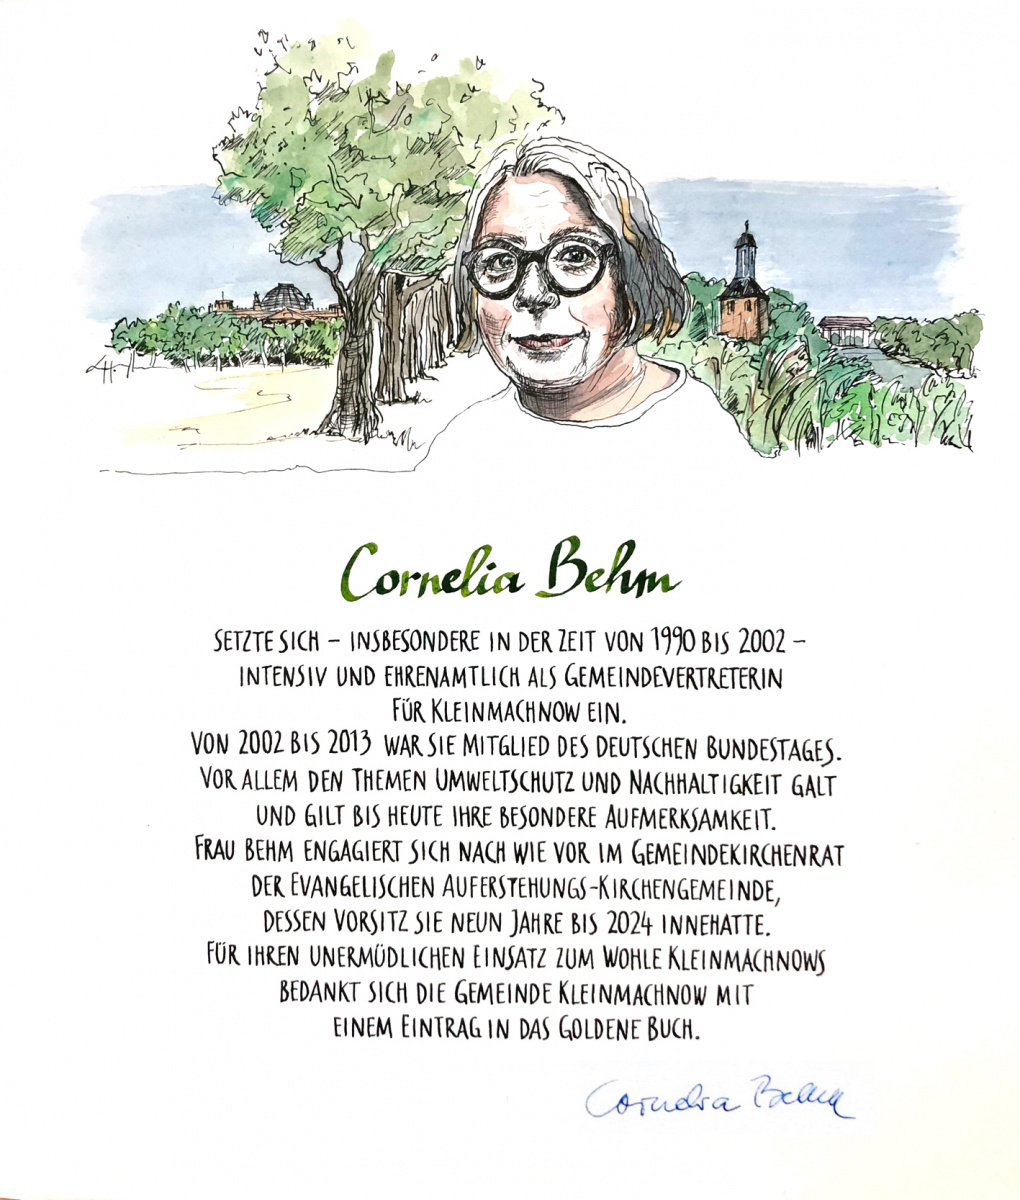 Cornelia Behm
SETZTE SICH – INSBESONDERE IN DER ZEIT VON 1990 BIS 2002 –
INTENSIV UND EHRENAMTLICH ALS GEMEINDEVERTRETERIN
FÜR KLEINMACHNOW EIN.
VON 2002 BIS 2013 WAR SIE MITGLIED DES DEUTSCHEN BUNDESTAGES.
VOR ALLEM DEN THEMEN UMWELTSCHUTZ UND NACHHALTIGKEIT GALT
UND GILT BIS HEUTE IHRE BESONDERE AUFMERKSAMKEIT.
FRAU BEHM ENGAGIERT SICH NACH WIE VOR IM GEMEINDEKIRCHENRAT
DER EVANGELISCHEN AUFERSTEHUNGS-KIRCHENGEMEINDE,
DESSEN VORSITZ SIE NEUN JAHRE BIS 2024 INNEHATTE.
FÜR IHREN UNERMÜDLICHEN EINSATZ ZUM WOHLE KLEINMACHNOWS
BEDANKT SICH DIE GEMEINDE KLEINMACHNOW MIT
EINEM EINTRAG IN DAS GOLDENE BUCH.
Cornelia Behm